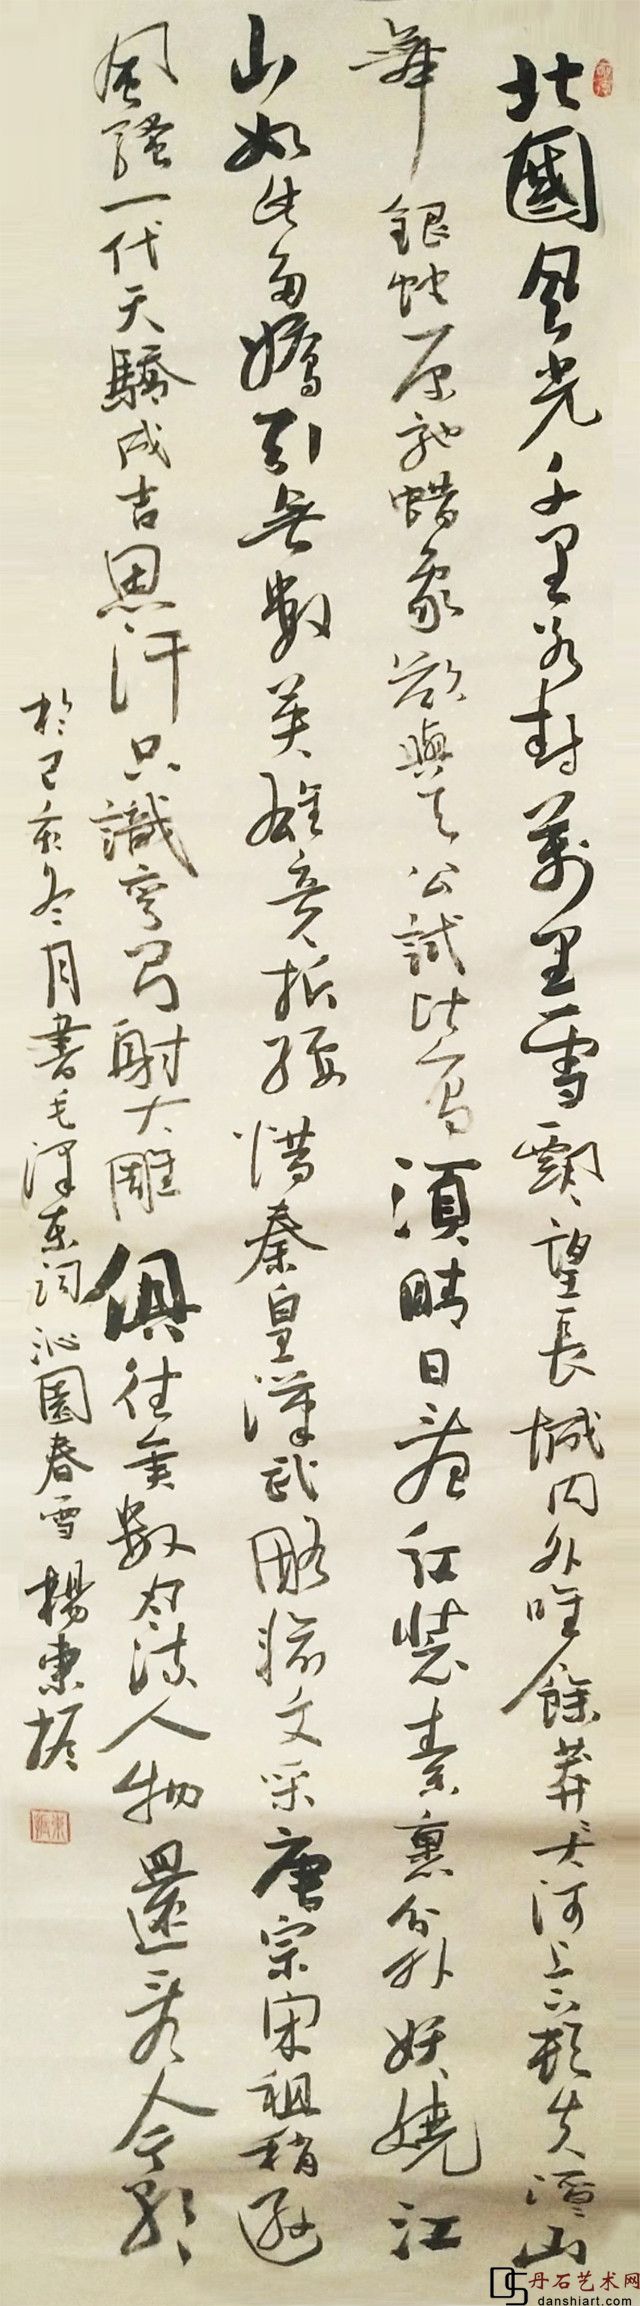 北國風光千里冰封萬里雪飄望長城內外唯餘莽〻大河上下頓失滔〻山
舞銀蛇原馳蜡象欲與天公試比高須晴日看紅裝素裹分外妖嬈江
山如此多嬌引無數英雄競折腰惜秦皇漢武略輸文采唐宗宋祖稍遜
風騷一代天驕成吉思汗只識彎弓射大雕俱往矣數風流人物還看今朝
於己亥冬月書毛澤東詞沁園春雪 楊東振
DS 丹石艺术网
danshiart.com